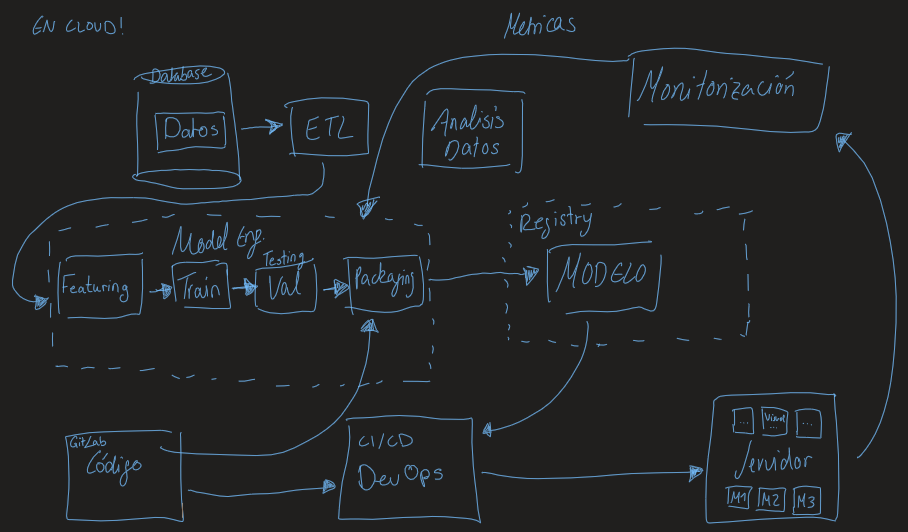 EN CLOUD!
Metricas
Database
Datos
ETL
Analisis
Datos
Monitorización
Model Eng.
Featuring
Train
Testing
Val
Packaging
Registry
MODELO
GitLab
Código
CI/CD
DevOps
...
...
...
Servidor
M1
M2
M3